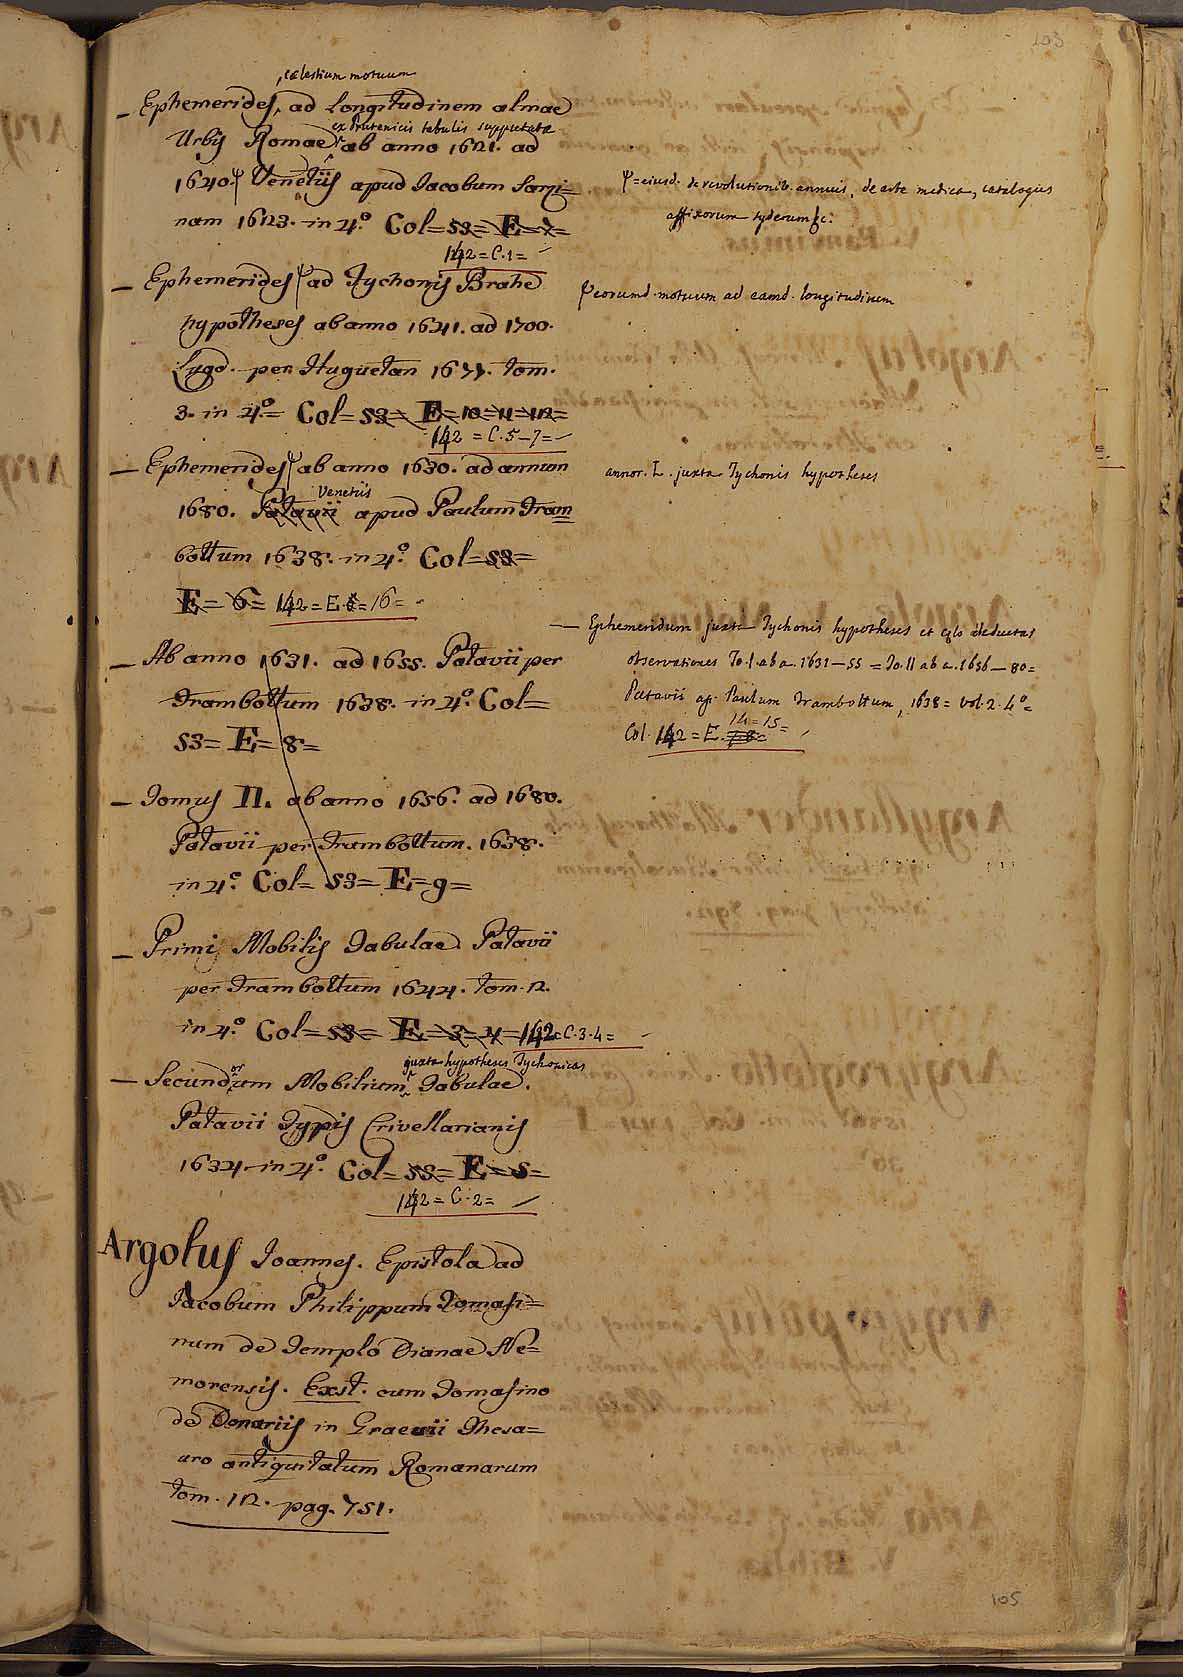 103
coelestium motuum
— Ephemerides, ad longitudinem almae
ex Prutenicis tabulis supputatae
Urbis Romae ab anno 1621. ad
1640. ψ Venetiis apud Jacobum Sarzi=
nam 1623. in 4.° Col= 53= E= 7=
142 = C. 1 =
ψ = eiusd. de revolutionib. annuis, de arte medica, catalogus
affixorum syderum &c.
— Ephemerides ψ ad Tychonis Brahe
ψ eorumd. motuum ad eamd. longitudinem
hypotheses ab anno 1641. ad 1700.
Lugd. per Huguetan 1677. tom.
3. in 4.°= Col= 53= E= 10= 11= 12=
142 = C. 5-7 =
— Ephemerides ψ ab anno 1630. ad annum
annor. L. juxta Tychonis hypotheses
Venetiis
1680. Patavii apud Paulum Fram
bottum 1638. in 4.° Col= 53=
E= 6= 142 = E. 6 = 16 =
— Ephemeridum juxta Tychonis hypotheses et coelo deductas
observationes To. I. ab a. 1631-55 = To. II ab a. 1656-80=
Patavii ap. Paulum Frambottum, 1638 = vol. 2. 4°=
14 = 15 =
Col. 142 = E. 7-8=
— Ab anno 1631. ad 1655. Patavii per
Frambottum 1638. in 4.° Col=
53= E= 8=
— Tomus II. ab anno 1656. ad 1680.
Patavii per Frambottum. 1638.
in 4.° Col= 53= E= 9=
— Primi Mobilis Tabulae. Patavii
per Frambottum 1644. tom. 2.
in 4.° Col= 53= E= 3= 4= 142= C. 3. 4=
juxta hypotheses Tychonicas
— Secundorum Mobilium Tabulae.
Patavii Typis Crivellarianis
1634. in 4.° Col= 53= E= 5=
142 = C. 2 =
Argolus Joannes. Epistola ad
Jacobum Philippum Tomasi=
num de Templo Dianae Ne=
morensis. Exst. cum Tomasino
de Donariis in Graevii Thesa=
uro antiquitatum Romanarum
tom. 12. pag. 751.
105